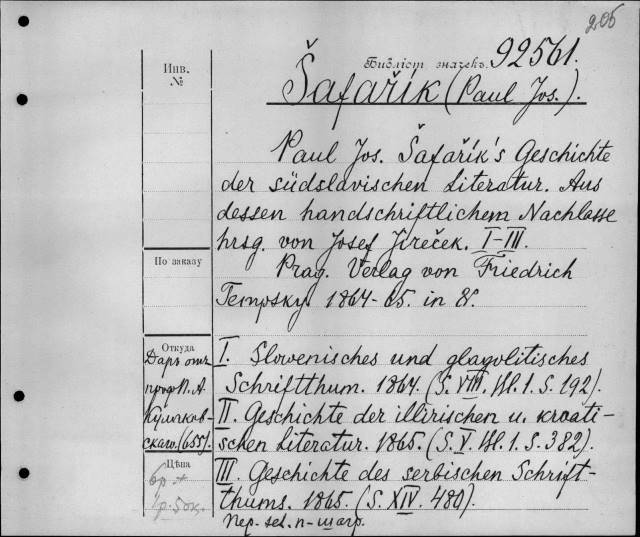 205
Библіот. значекъ. 92561.
Инв.
№
Šafařík (Paul Jos.).
Paul Jos. Šafařík's Geschichte
der südslavischen Literatur. Aus
dessen handschriftlichem Nachlasse
hrsg. von Josef Jireček. I-III.
По заказу
Prag. Verlag von Friedrich
Tempsky. 1864-65. in 8°.
Откуда
Даръ отъ
проф. П. А.
Кулаков-
скаго. (655).
I. Slowenisches und glagolitisches
Schriftthum. 1864. (S. VIII. Bl. 1. S. 192).
II. Geschichte der illirischen u. kroati-
schen Literatur. 1865. (S. V. Bl. 1. S. 382).
Цѣна
III. Geschichte des serbischen Schrift-
thums. 1865. (S. XIV. 480).